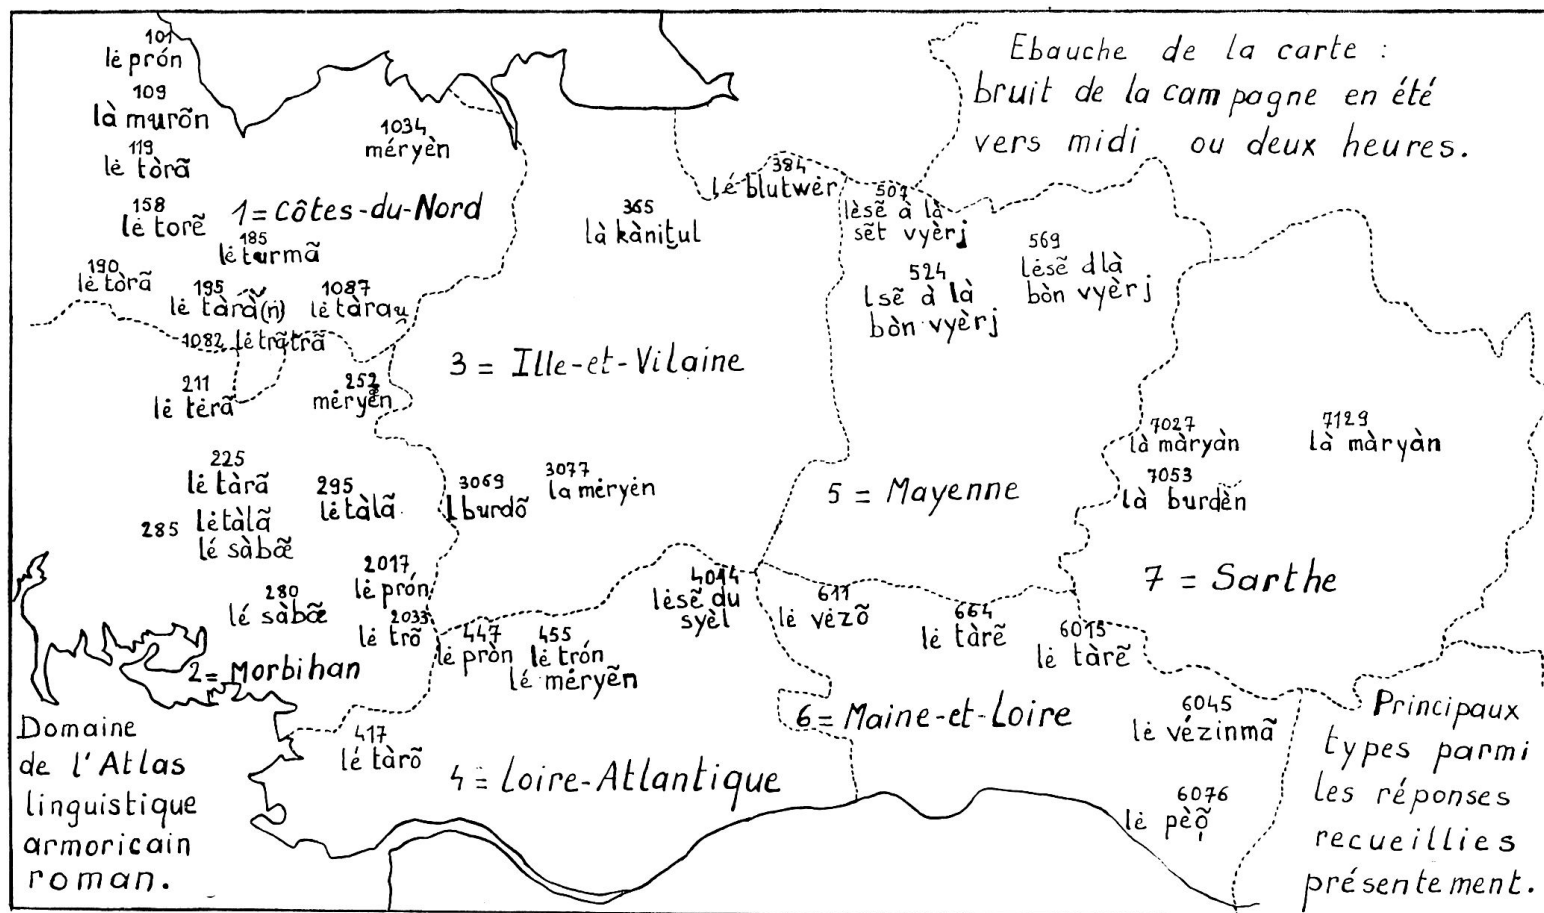 Ebauche de la carte :
bruit de la campagne en été
vers midi ou deux heures.
101
lė prón
109
là murõn
119
lė tòrã
1034
méryèn
158
lė torẽ
1 = Côtes-du-Nord
185
lė turmã
190
lė tòrã
195
lė tàrà̃(ṅ)
1087
lė tàrau̯
1082 lė trãtrã
211
lė tėrã
252
mėryẽn
225
lė tàrã
295
lė tàlã
285
lė tàlã
lé sàbœ̃
280
lé sàbœ̃
2017
lė prón
2033
lė trõ
2 = Morbihan
365
là kànitul
384
lé blutwėr
3 = Ille-et-Vilaine
3069
l burdõ
3077
la mėryėn
507
lèsẽ à là
sẽt vyèrj
524
lsẽ à là
bòn vyèrj
569
lėsẽ dlà
bòn vyèrj
5 = Mayenne
7027
là màryàn
7129
là màryàn
7053
là burdèn
7 = Sarthe
447
lė pròn
455
lė trón
lé méryẽn
4014
lėsẽ du
syèl
417
lé tàrõ
4 = Loire-Atlantique
611
lė vėzõ
664
lė tàrẽ
6015
lė tàrẽ
6 = Maine-et-Loire
6045
lė vézinmã
6076
lė pèọ̃
Domaine
de l'Atlas
linguistique
armoricain
roman.
Principaux
types parmi
les réponses
recueillies
présentement.